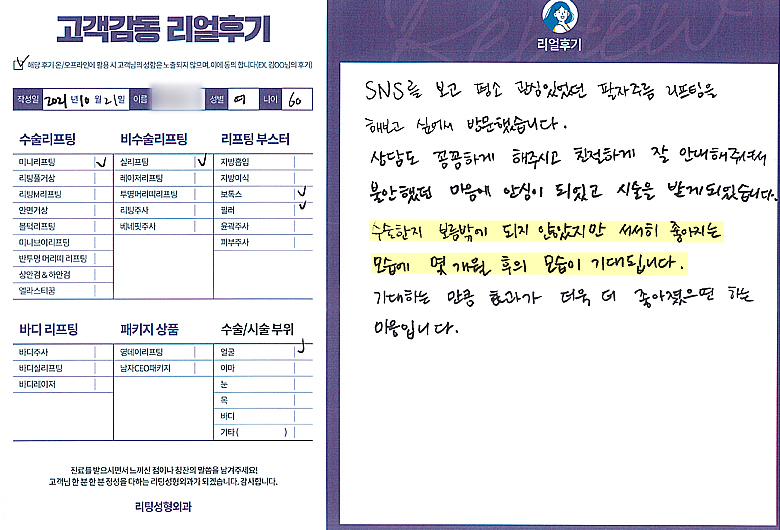 고객감동 리얼후기
해당 후기 온/오프라인에 활용 시 고객님의 성함은 노출되지 않으며, 이에 동의 합니다(EX. 김OO님의 후기)
작성일 2021년 10월 21일 이름 성별 여 나이 60
수술리프팅 비수술리프팅 리프팅 부스터
미니리프팅 실리프팅 지방흡입
리팅풀거상 레이저리프팅 지방이식
리팅M리프팅 투명머리띠리프팅 보톡스
안면거상 리팅주사 필러
블럭리프팅 베네핏주사 윤곽주사
미니브이리프팅 피부주사
반투명 머리띠 리프팅
상안검 & 하안검
엘라스티꿈
바디 리프팅 패키지 상품 수술/시술 부위
바디주사 영데이리프팅 얼굴
바디실리프팅 남자CEO패키지 이마
바디레이저 눈
목
바디
기타 ( )
진료를 받으시면서 느끼신 점이나 칭찬의 말씀을 남겨주세요!
고객님 한 분 한 분 정성을 다하는 리팅성형외과가 되겠습니다. 감사합니다.
리팅성형외과
Review
리얼후기
SNS를 보고 평소 관심있었던 팔자주름 리프팅을
해보고 싶어서 방문했습니다.
상담도 꼼꼼하게 해주시고 친절하게 잘 안내해주셔서
불안했던 마음에 안심이 되었고 시술을 받게되었습니다.
수술한지 보름밖에 되지 않았지만 서서히 좋아지는
모습에 몇 개월 후의 모습이 기대됩니다.
기대하는 만큼 효과가 더욱 더 좋아졌으면 하는
마음입니다.